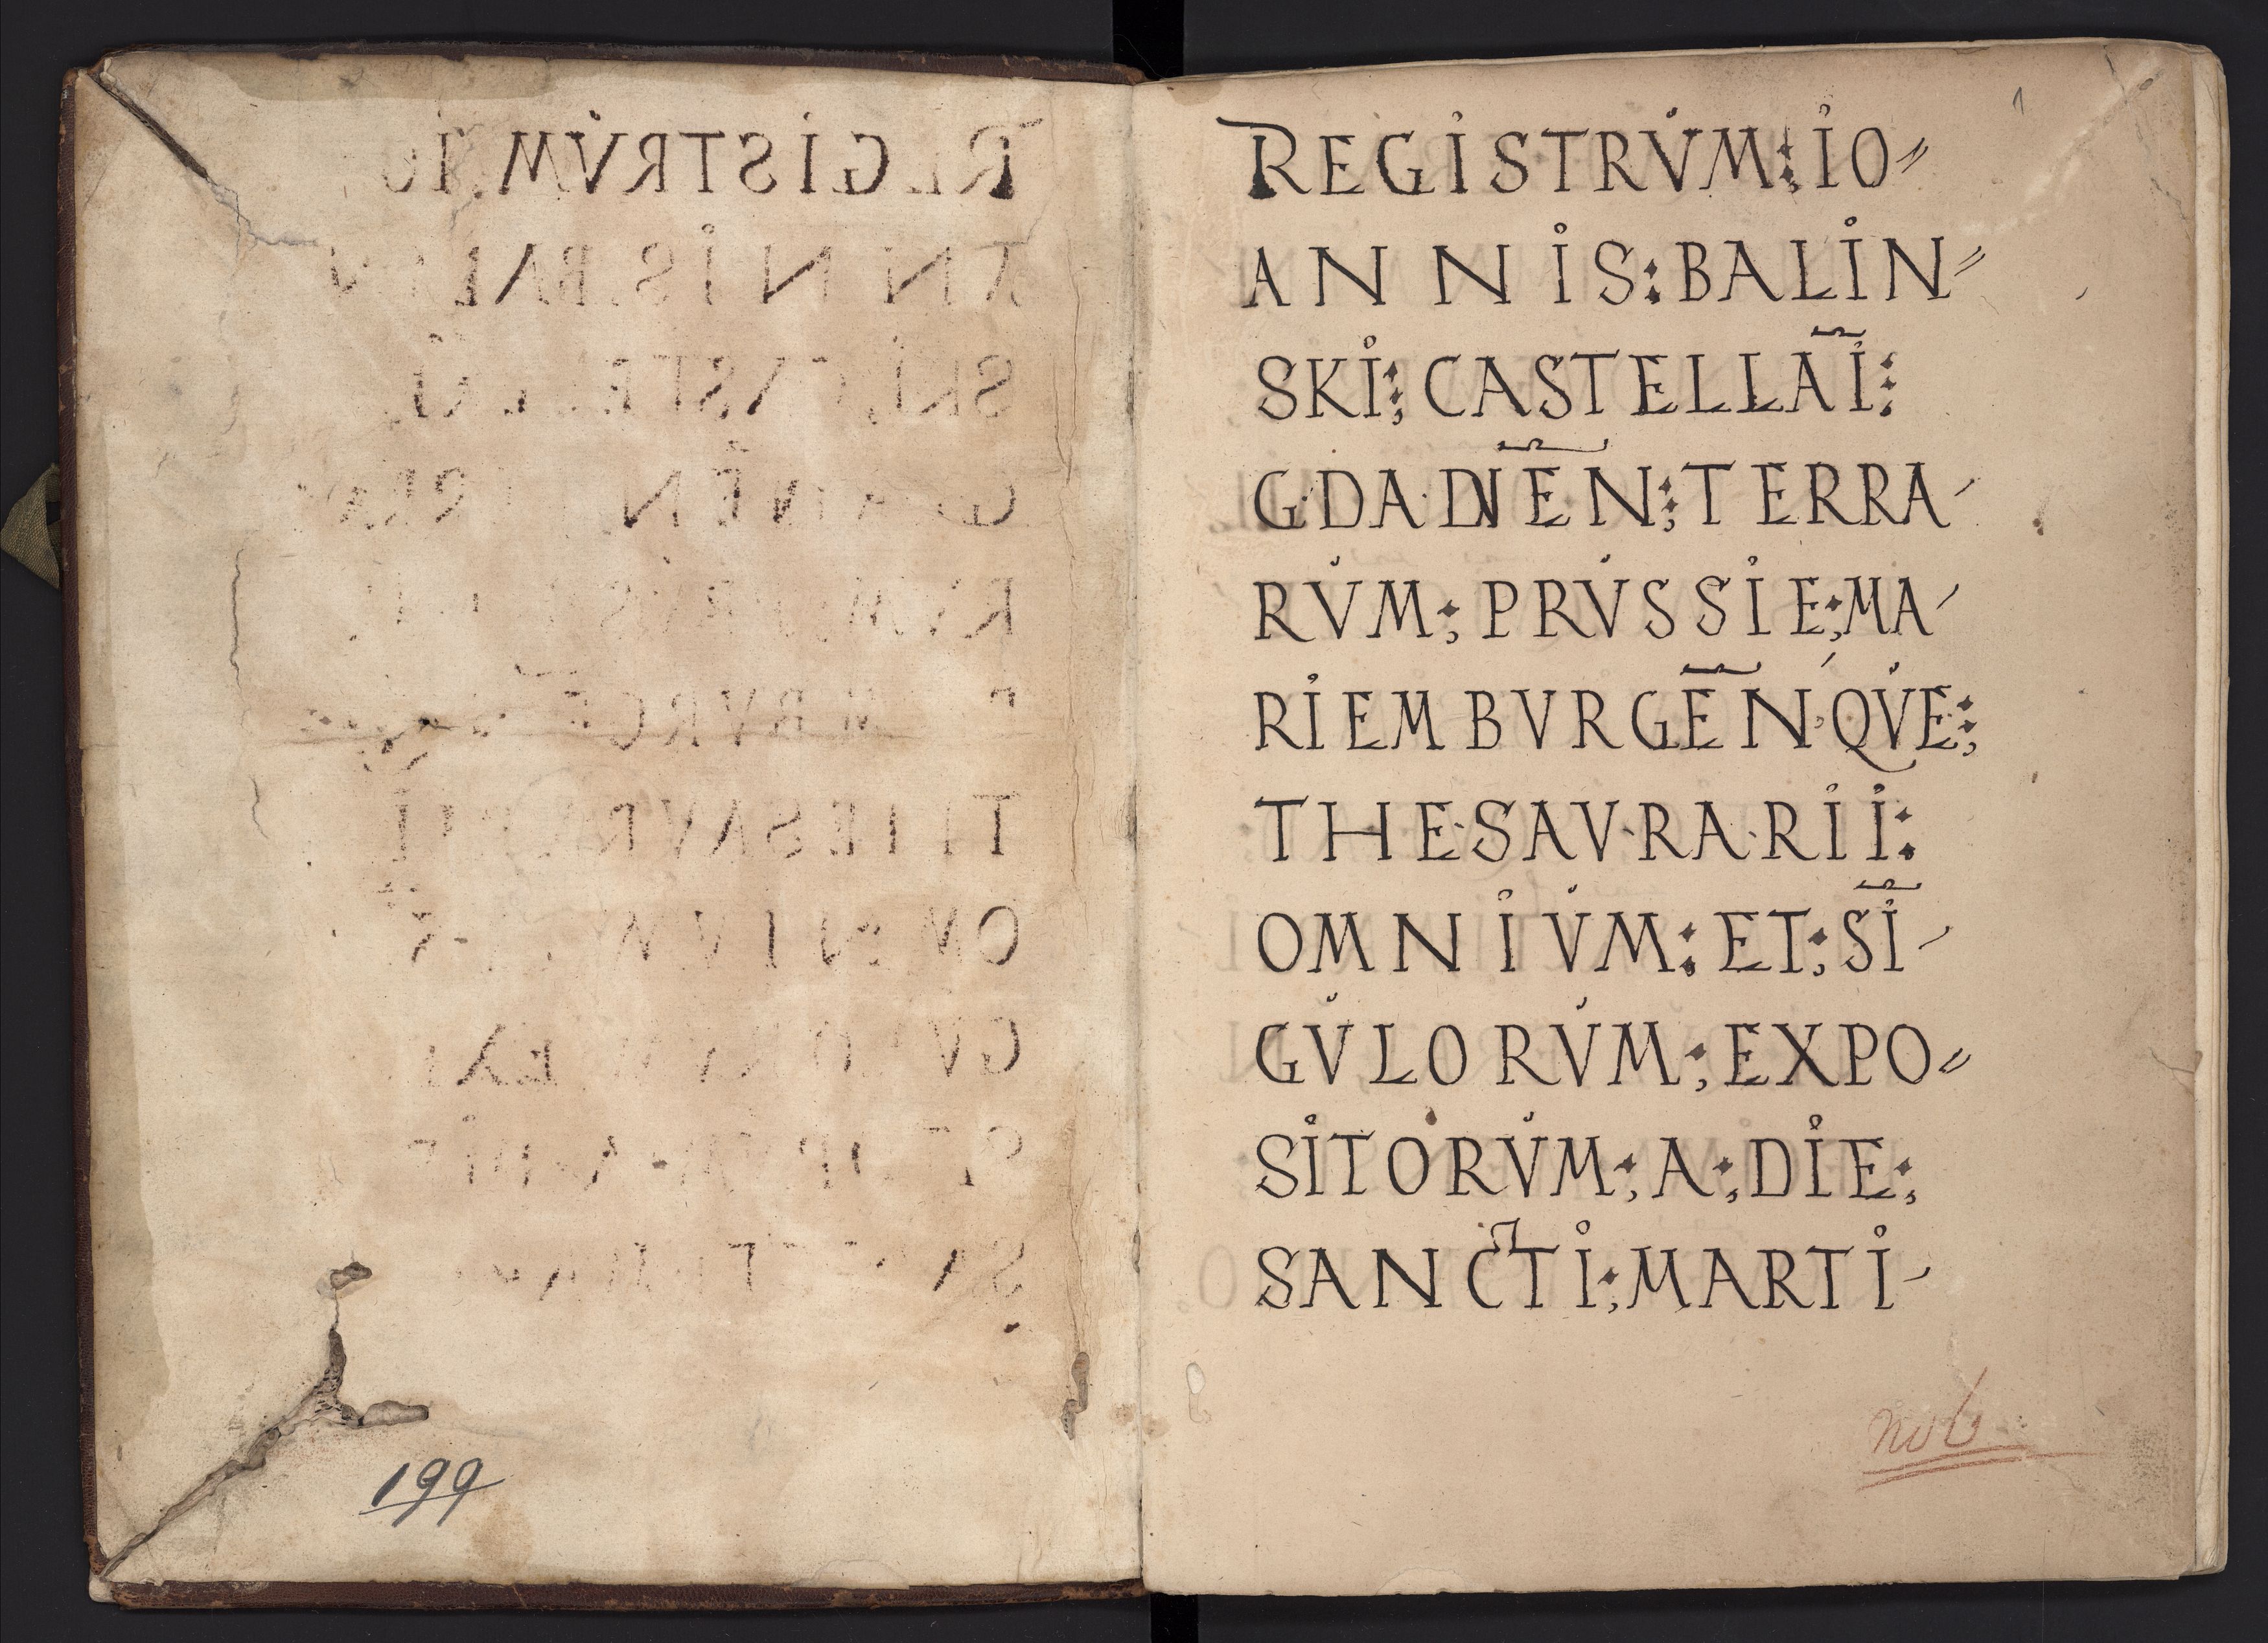 199
1
REGISTRVM: IO=
ANNIS: BALIN=
SKI; CASTELLAĪ:
GDADNĒN; TERRA-
RVM; PRVSSIE; MA-
RIEMBVRGĒN QVE;
THESAVRARII:
OMNIVM: ET; SĪ-
GVLORVM; EXPO=
SITORVM; A; DIE;
SANCTI; MARTI-